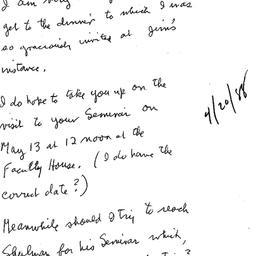 I am
get to the dinner to which I was
so graciously invited at Jim's
instance.
I do hope to take you up on the
visit to your Seminar on
May 13 at 12 noon at the
Faculty House. (I do have the
correct date?)
4/20/88
Meanwhile should I try to reach
Shulman for his Seminar which,